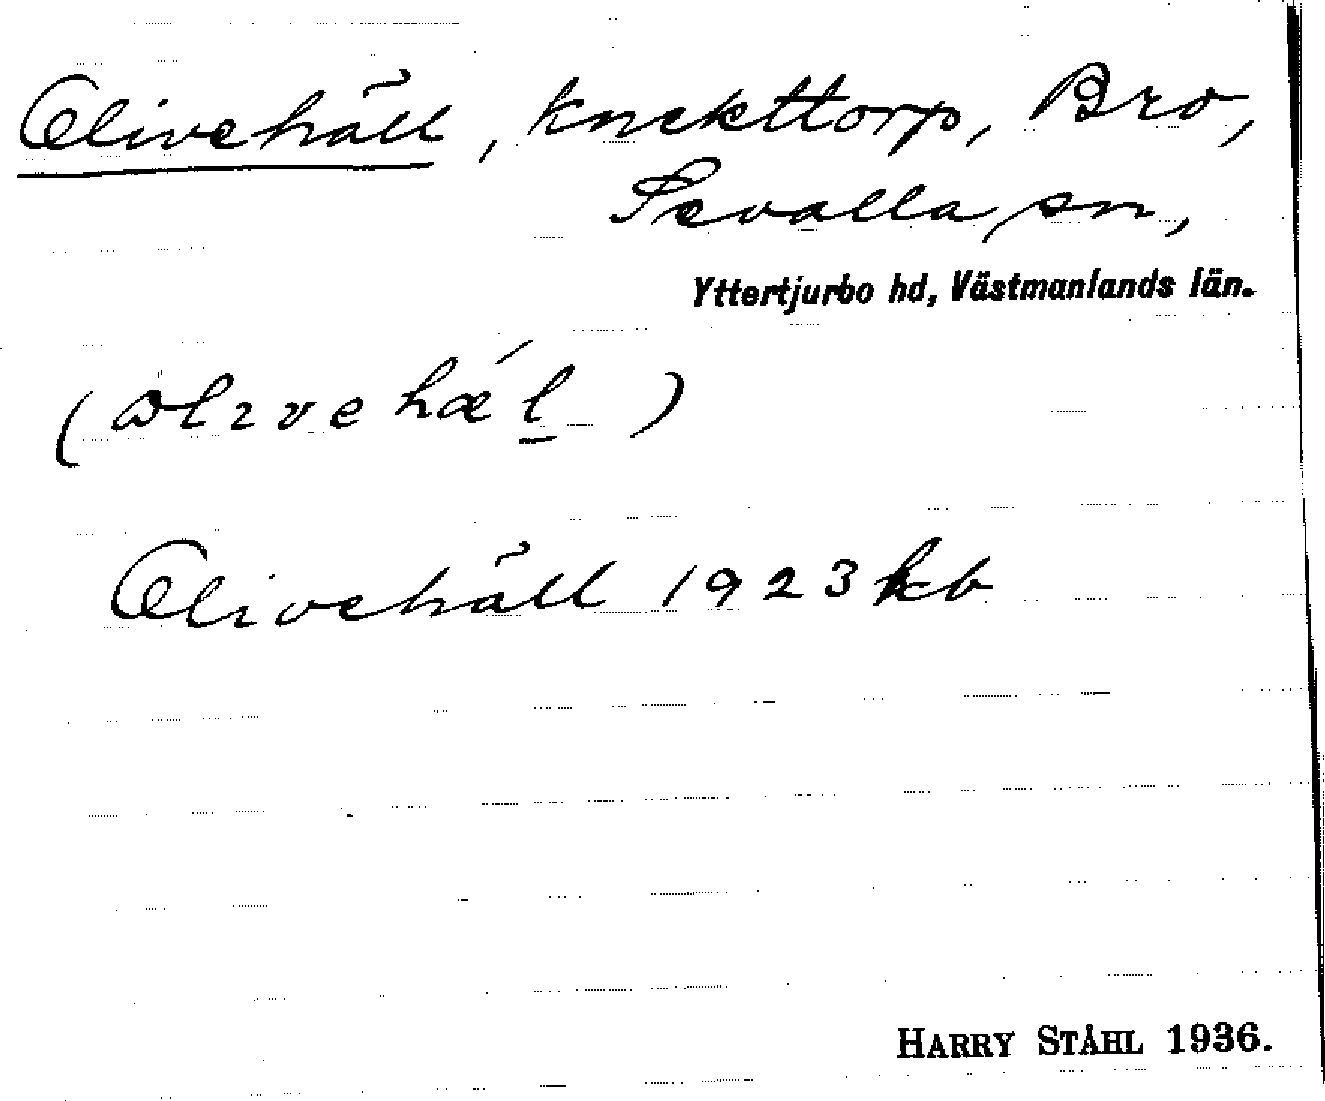 Olivehäll, knekttorp, Bro,
Sevalla sn,
Yttertjurbo hd, Västmanlands län.
Olivehäll 1923 kb
HARRY STÅHL 1936.